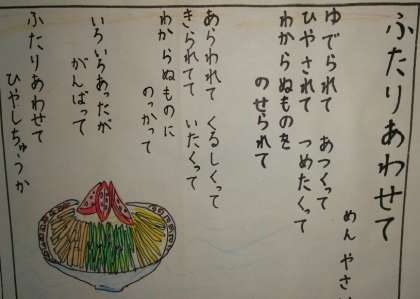 ふたりあわせて
めん やさ
ゆでられて あつくって
ひやされて つめたくって
わからぬものを
のせられて
あらわれて くるしくって
きられてて いたくって
わからぬものに
のっかって
いろいろあったが
がんばって
ふたりあわせて
ひやしちゅうか